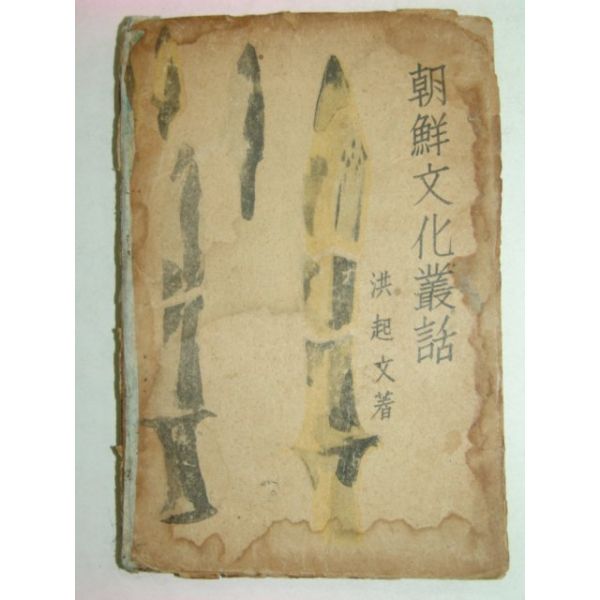 朝鮮文化叢話
洪起文著